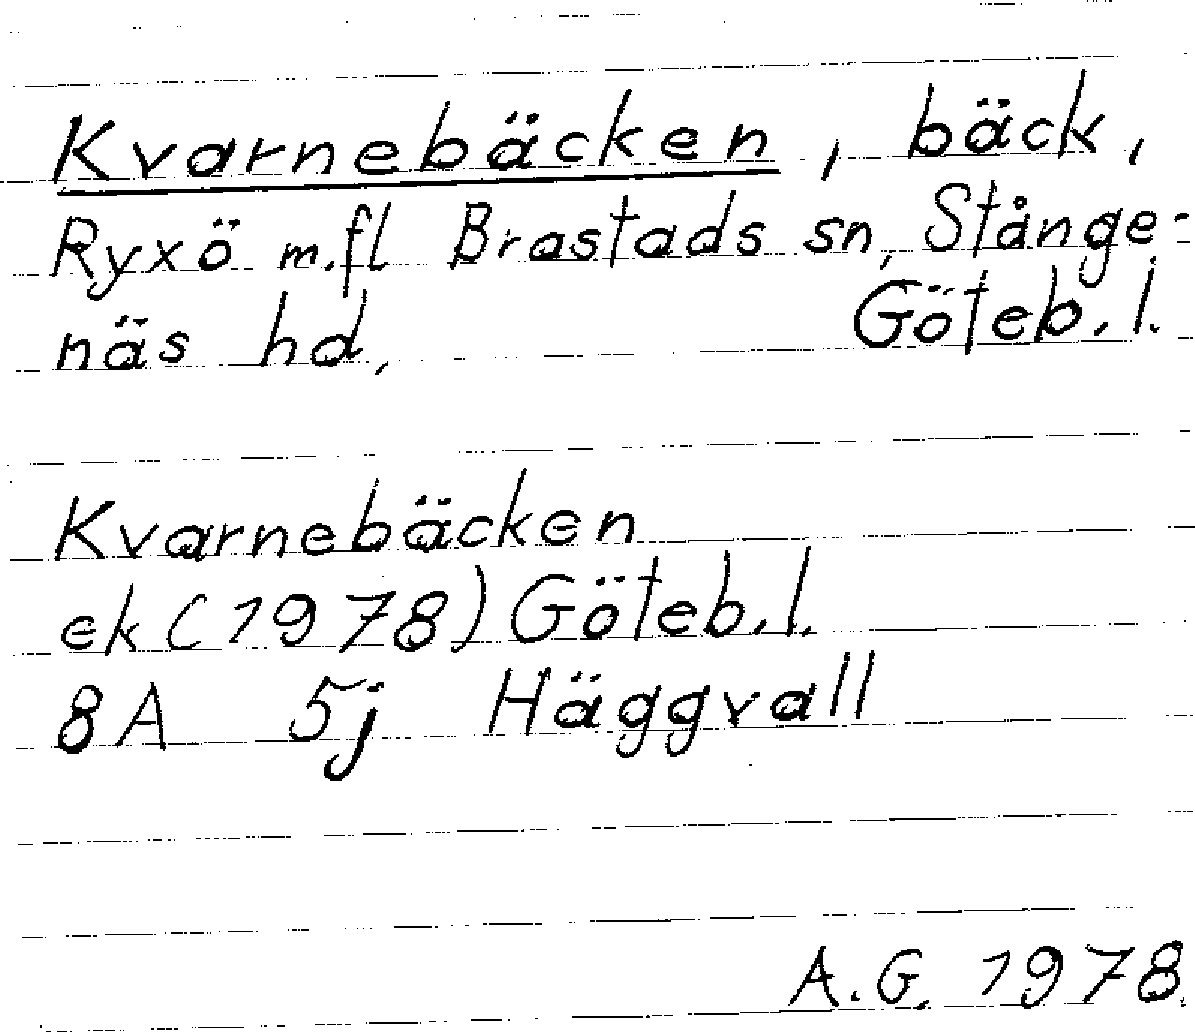 Kvarnebäcken, bäck,
Ryxö m.fl Brastads sn, Stånge-
näs hd, Göteb.l.
Kvarnebäcken
ek (1978) Göteb.l.
8A 5j Häggvall
A.G. 1978.